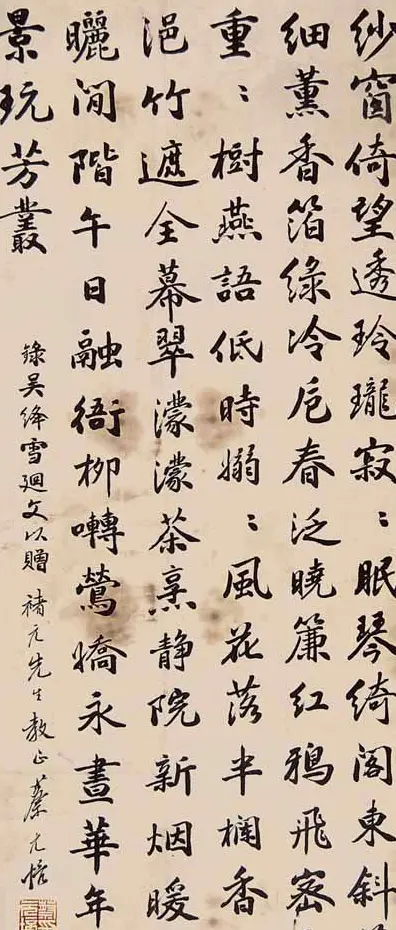 紗窗倚望透玲瓏寂〻眠琴綺閣東斜
細薰香箔綠冷卮春泛曉簾紅鴉飛密
重〻樹燕語低時嫋〻風花落半欄香
浥竹遮全幕翠濛濛茶烹靜院新烟暖
曬閒階午日融衙柳囀鶯嬌永晝華年
景玩芳叢
錄吳絳雪迴文以贈 禇元先生教正 蔡元培